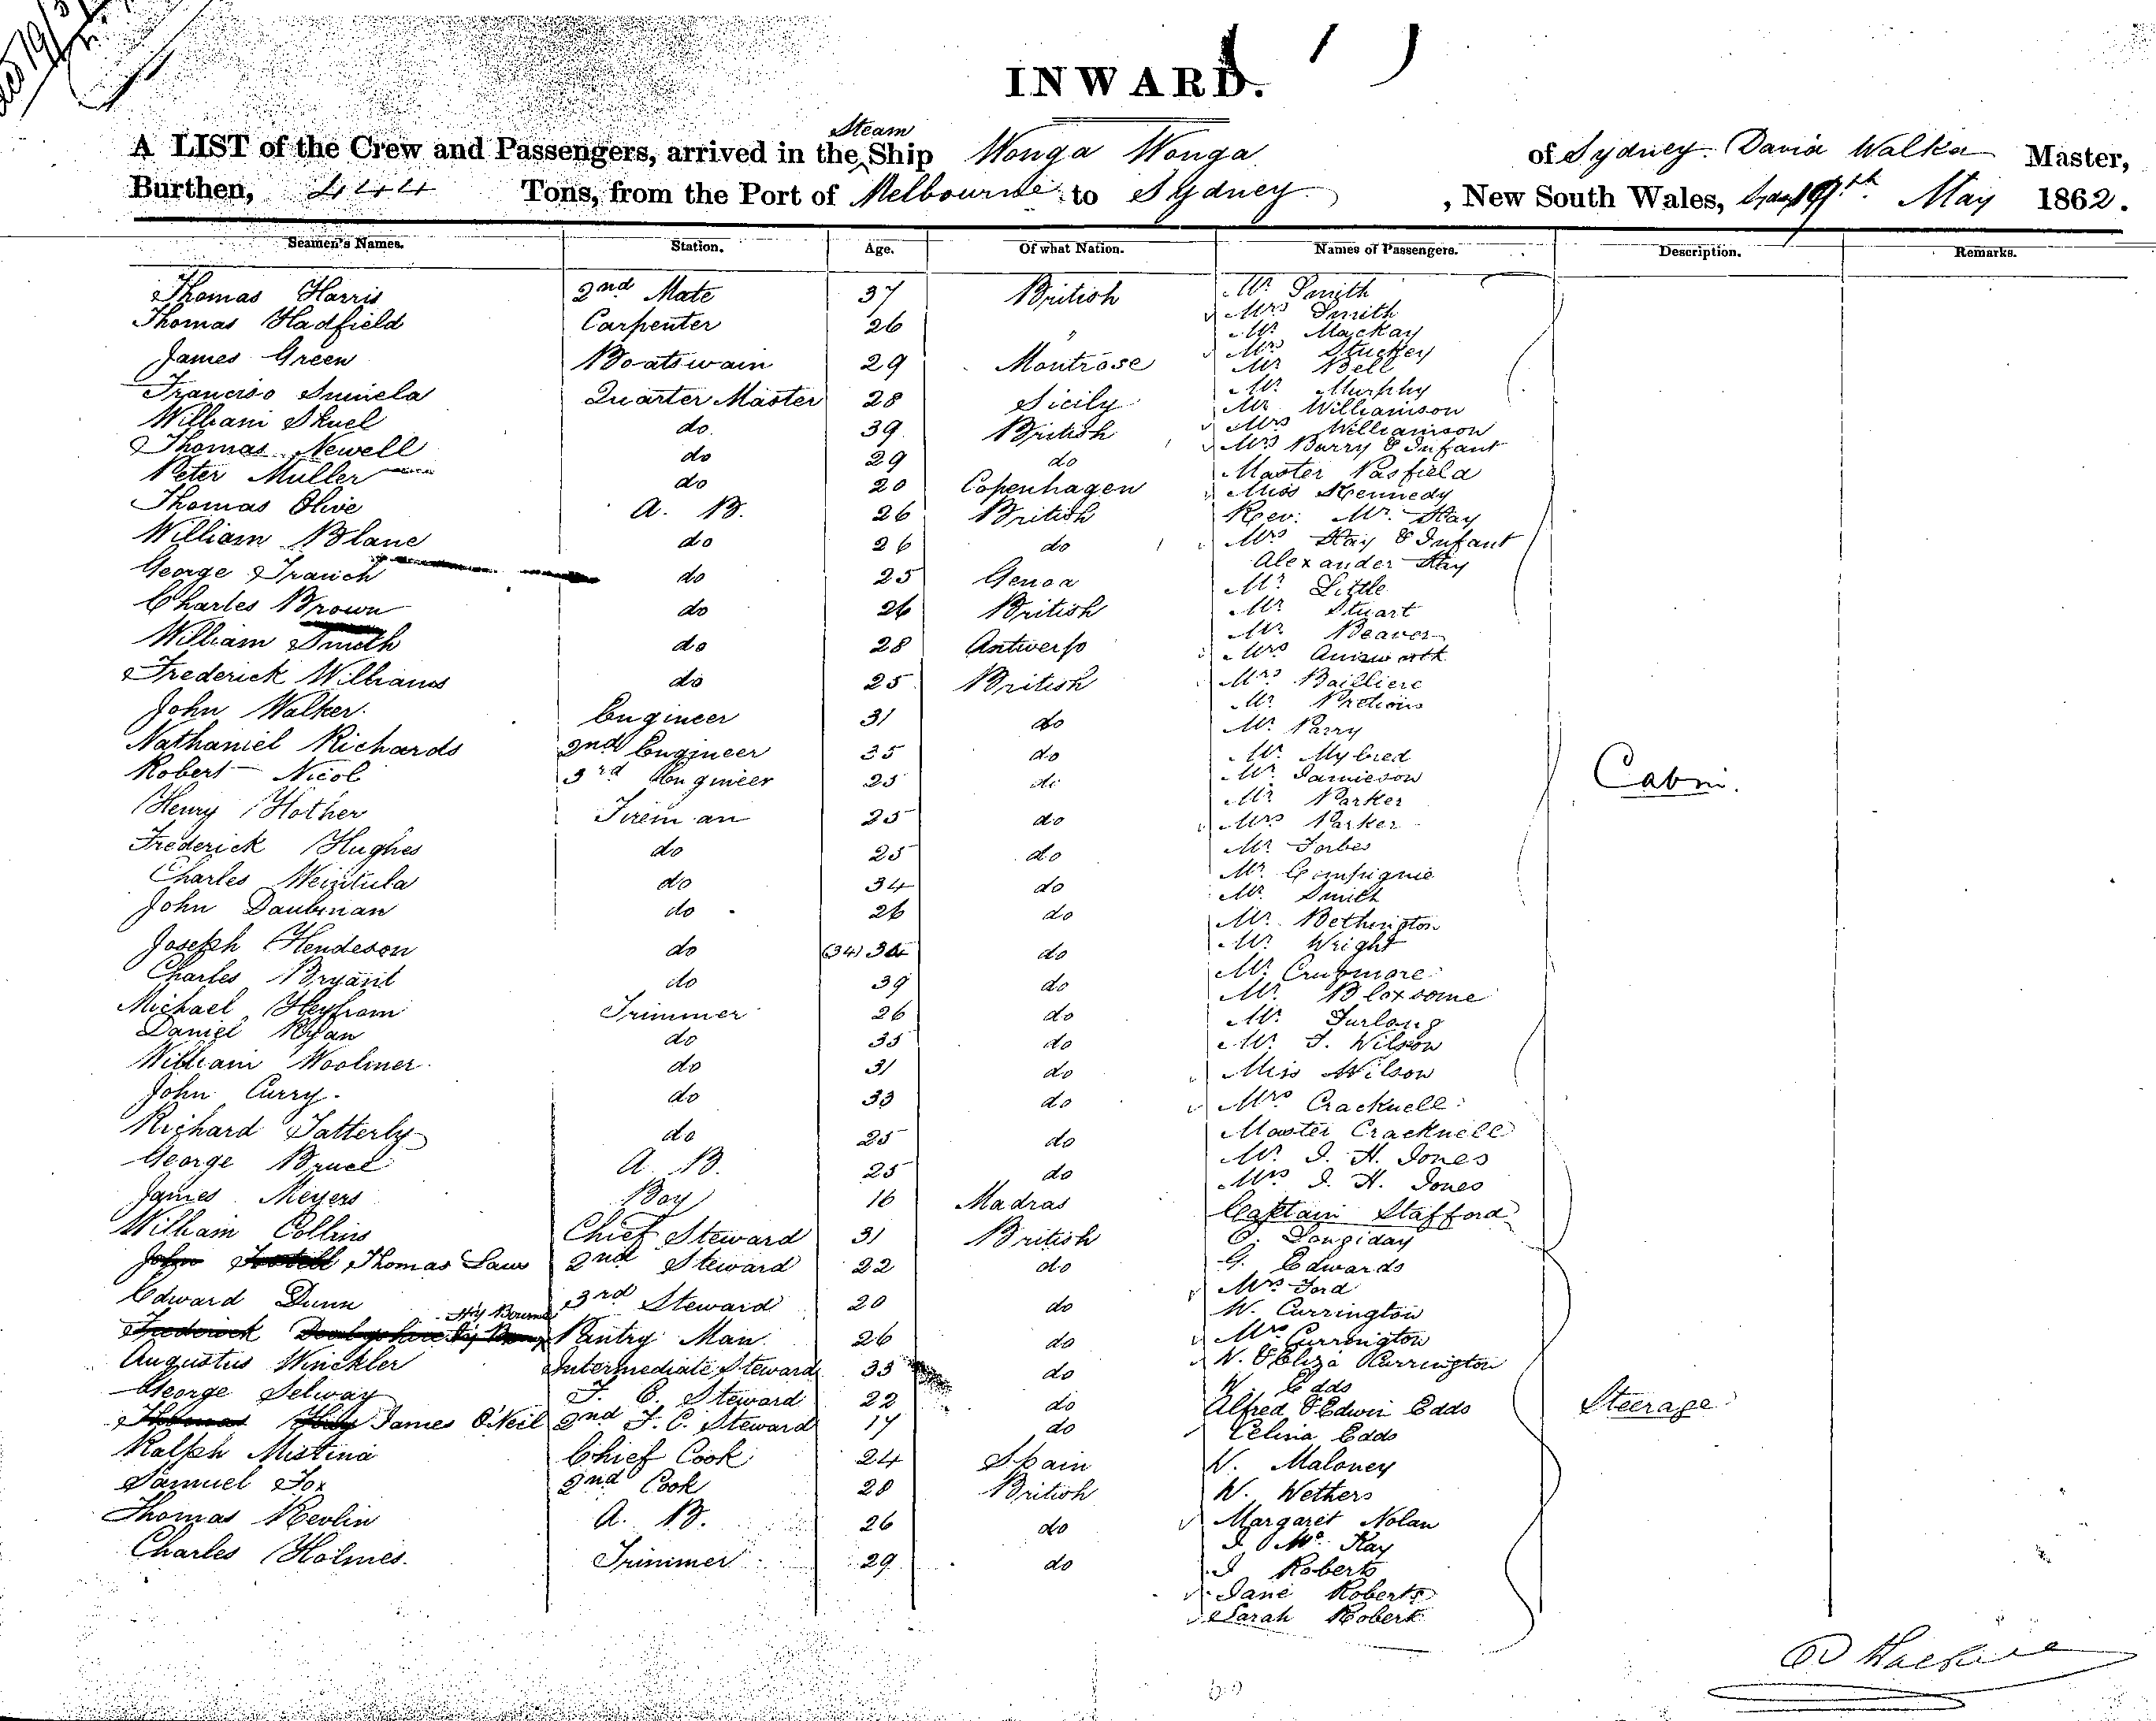 INWARD.
A LIST of the Crew and Passengers, arrived in the Steam Ship Wonga Wonga of Sydney. David Walker Master,
Burthen, 444 Tons, from the Port of Melbourne to Sydney, New South Wales, 19th May 1862.
Seamen's Names. Station. Age. Of what Nation. Names of Passengers. Description. Remarks.
Thomas Harris 2nd Mate 37 British Mr Smith
Mrs Smith
Thomas Hadfield Carpenter 26 " Mr Mackay
Mrs Stuckey
James Green Boatswain 29 Montrose Mr Bell
Mr Murphy
Quarter Master 28 Sicily Mr Williamson
William Skuel do. 39 British Mrs Williamson
Mrs Barry & Infant
Thomas Newell do 29 do
Master Pasfield
Peter Muller do 20 Copenhagen Miss Kennedy
Thomas Olive A. B. 26 British Rev: Mr. Hay
William Blane do 26 do Mrs Hay & Infant
Alexander Hay
George do 25 Genoa Mr Little
Charles Brown do 26 British Mr Stuart
Mr Beaver
William Smith do 28 Antwerp Mrs Ainsworth
Frederick Williams do 25 British Mrs Bailliere
Mr
John Walker. Engineer 31 do Mr Parry
Nathaniel Richards 2nd Engineer 35 do Mr
Robert Nicol 3rd Engineer 25 do Mr Jamieson
Mr Parker
Henry Hother Fireman 25 do Mrs Parker
Frederick Hughes do 25 do Mr Forbes
Charles do 34 do Mr
Mr Smith
John Daubman do 26 do Mr
Joseph Hendeson do (34) 34 do Mr Wright
Charles Bryant do 39 do Mr
Mr Bloxsome
Michael Trimmer 26 do Mr Furlong
Daniel Ryan do 35 do Mr. J. Wilson
William Woolmer do 31 do Miss Wilson
John Curry. do 33 do Mrs Cracknell
Richard Tatterly do 25 do Master Cracknell
Mr J. H. Jones
George Bruce A. B. 25 do Mrs J. H. Jones
James Meyers Boy 16 Madras Captain Stafford
Cabin.
William Collins Chief Steward 31 British
Thomas Laws 2nd Steward 22 do G. Edwards
Mrs Ford
Edward Dunn 3rd Steward 20 do W. Currington
Hy Bourne Pantry Man 26 do Mrs Currington
Augustus Winckler Intermediate Steward 33 do W. & Eliza Currington
W. Edds
George Selway F. C. Steward 22 do Alfred & Edwin Edds
James O'Neil 2nd F. C. Steward 17 do Celina Edds
Steerage
Ralph Mistina Chief Cook 24 Spain W. Maloney
Samuel Fox 2nd Cook 28 British W. Wethers
Thomas Kevlin A. B. 26 do Margaret Nolan
J Mc Kay
Charles Holmes. Trimmer 29 do J Roberts
Jane Roberts
Sarah Robert